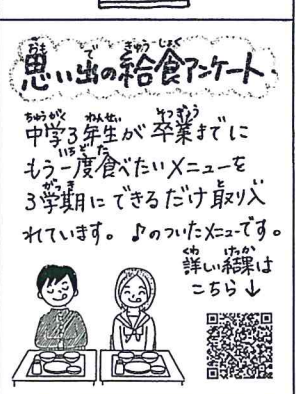 思い出の給食アンケート
中学3年生が卒業までに
もう一度食べたいメニューを
3学期にできるだけ取り入
れています。♪のついたメニューです。
詳しい結果は
こちら↓